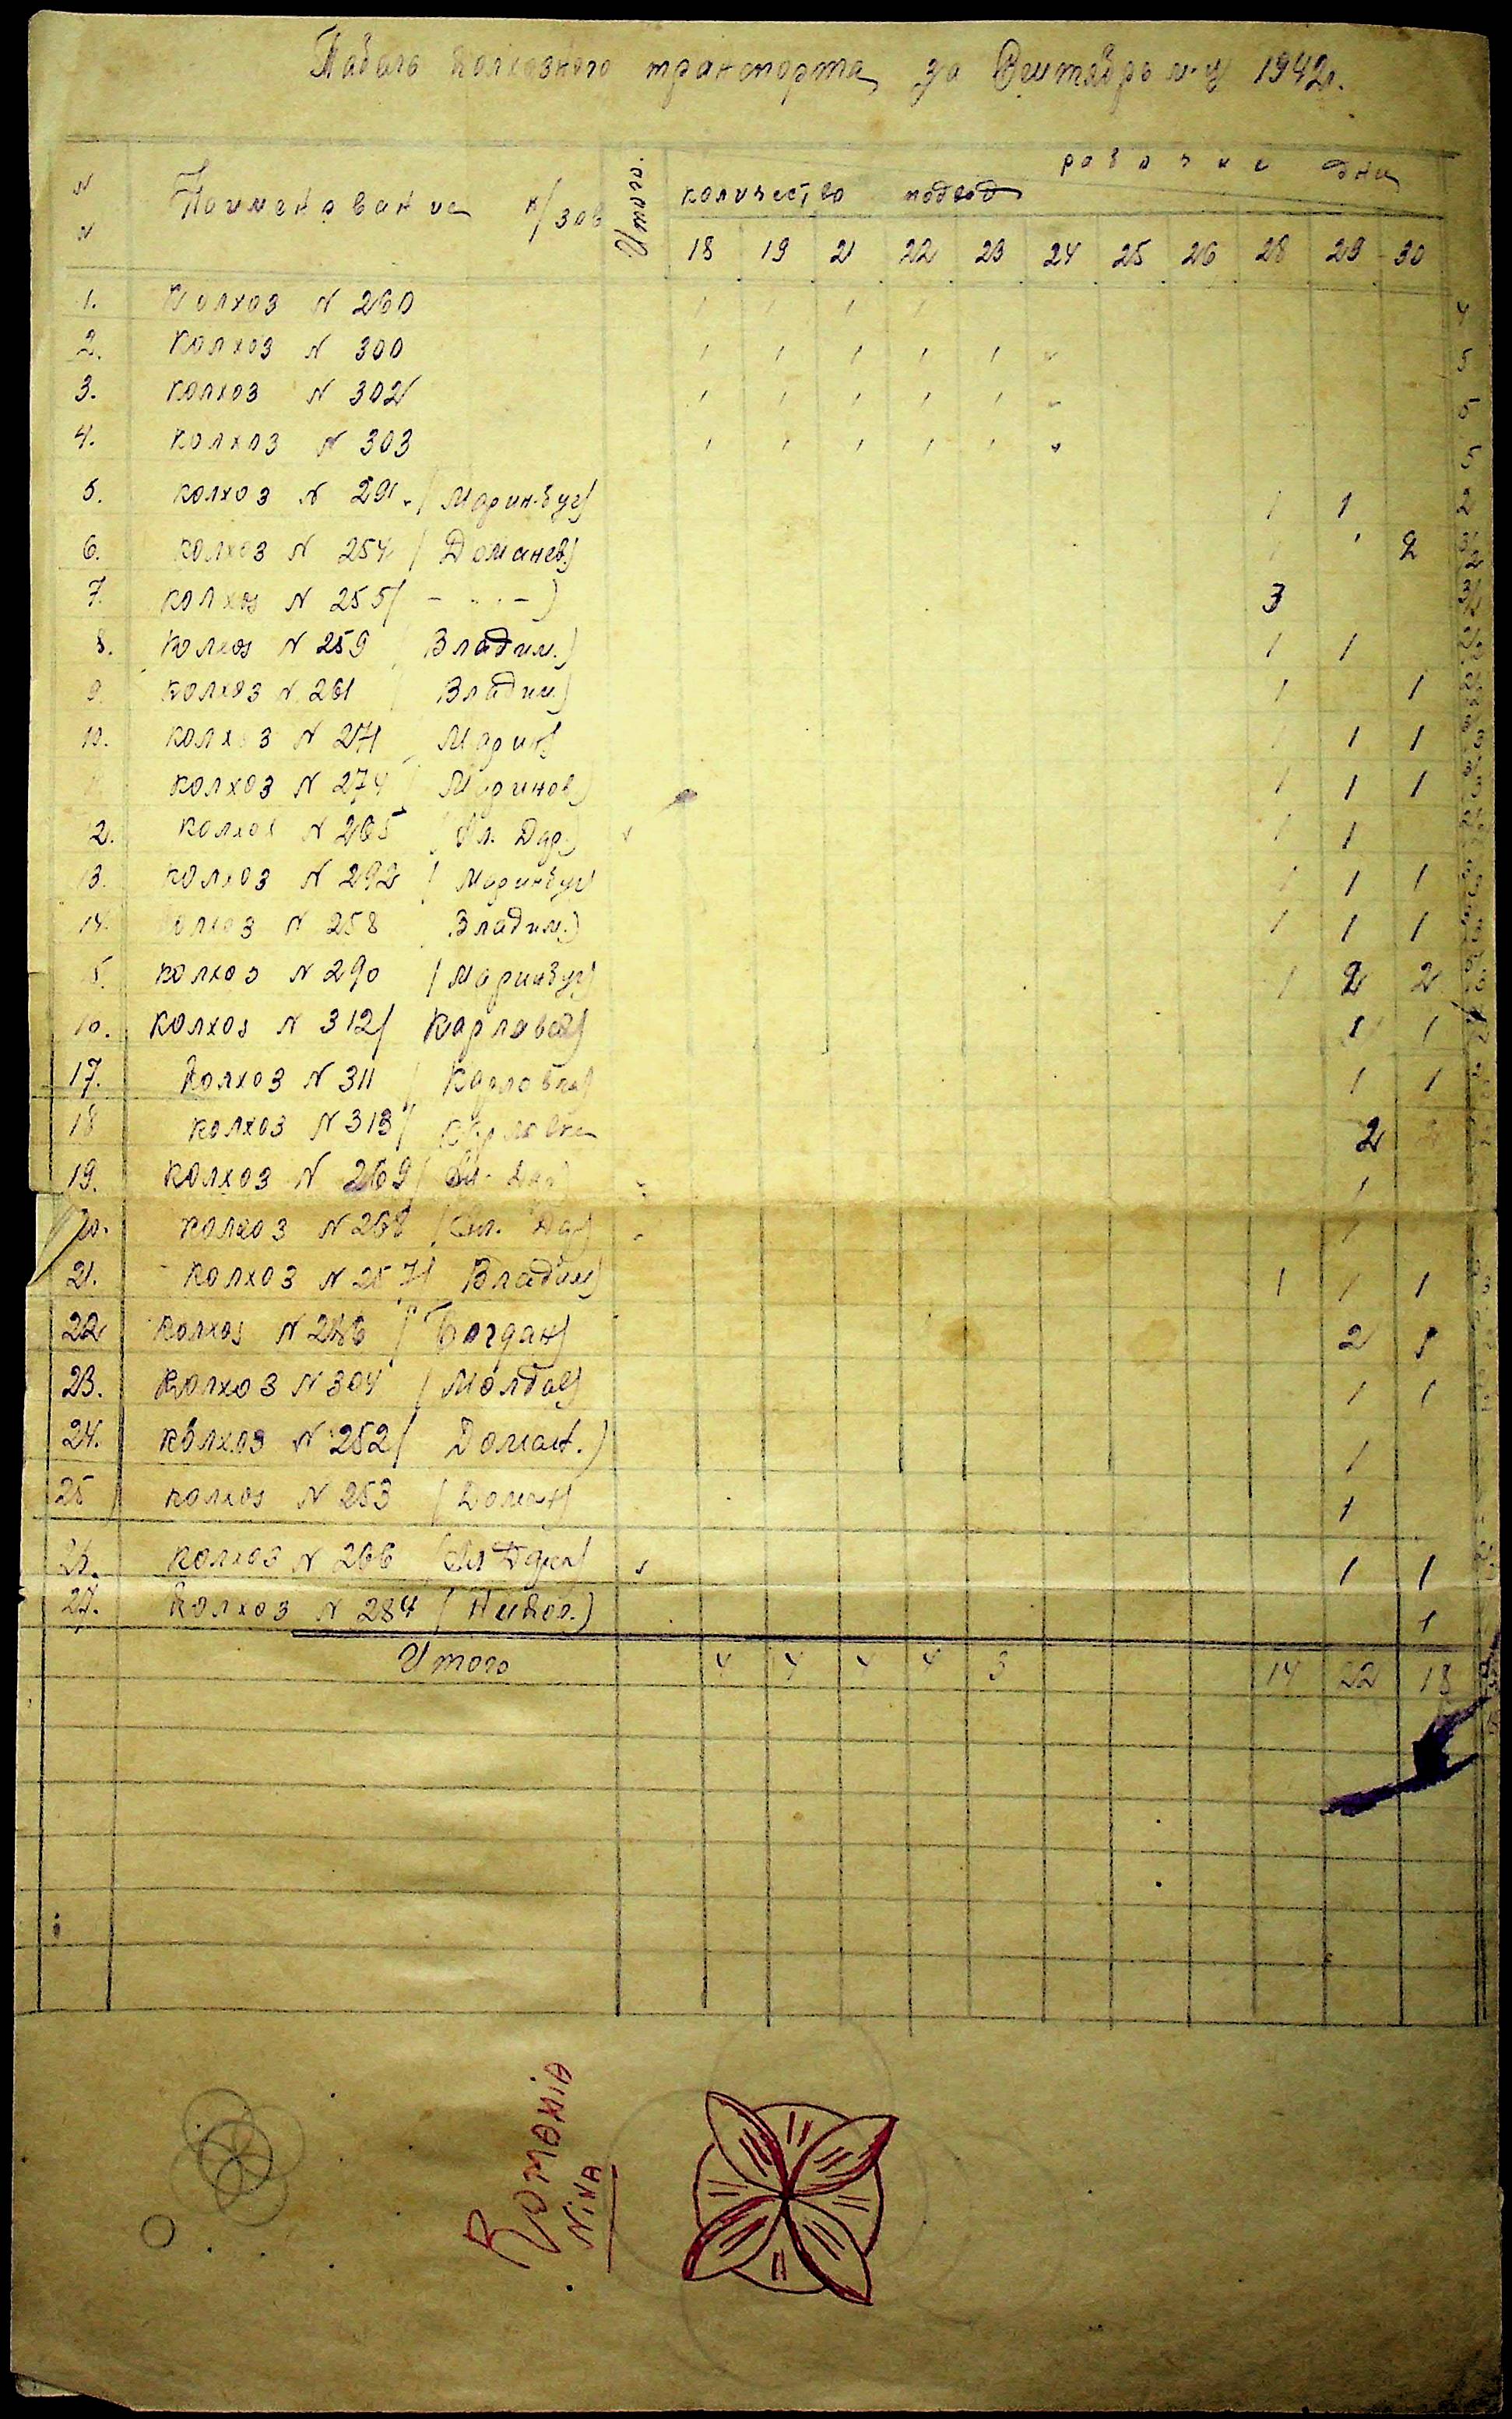 Табель колхозного транспорта за Сентябрь м-ц 1942г.
N N Наименование к/зов Итого. количество подвод рабочие дни
18 19 21 22 23 24 25 26 28 29 30
1. Колхоз N 260 1 1 1 1 4
2. Колхоз N 300 1 1 1 1 1 5
3. Колхоз N 302 1 1 1 1 1 5
4. Колхоз N 303 1 1 1 1 1 5
5. Колхоз N 291 (Марин-буг) 1 1 2
6. Колхоз N 254 (Доманев) 1 1 2
7. Колхоз N 255 ( - " - ) 3
8. Колхоз N 259 (Владим.) 1 1
9. Колхоз N 261 (Владим) 1 1
10. Колхоз N 271 (Марин) 1 1 1
Колхоз N 274 (Маринов) 1 1 1
12. Колхоз N 265 (Ал. Дар) 1 1
13. Колхоз N 292 (Маринбуг) 1 1 1
14. Колхоз N 258 Владим.) 1 1 1
15. Колхоз N 290 (Маринбуг) 1 2 2
16. Колхоз N 312 (Карловка) 1 1
17. Колхоз N 311 (Карловка) 1 1
18 Колхоз N 313 (Карловка 2 2
19. Колхоз N 269 1
20. Колхоз N 268 1
21. Колхоз N 257 (Владим) 1 1 1
22 Колхоз N 286 (Богдан) 2 1
23. Колхоз N 304 (Молдав) 1 1
24. Колхоз N 252 (Доман.) 1
25 Колхоз N 253 (Доман) 1
26. Колхоз N 266 1 1
27. Колхоз N 284 (Никол.) 1
Итого 4 4 4 4 3 14 22 18
Romania
Nina